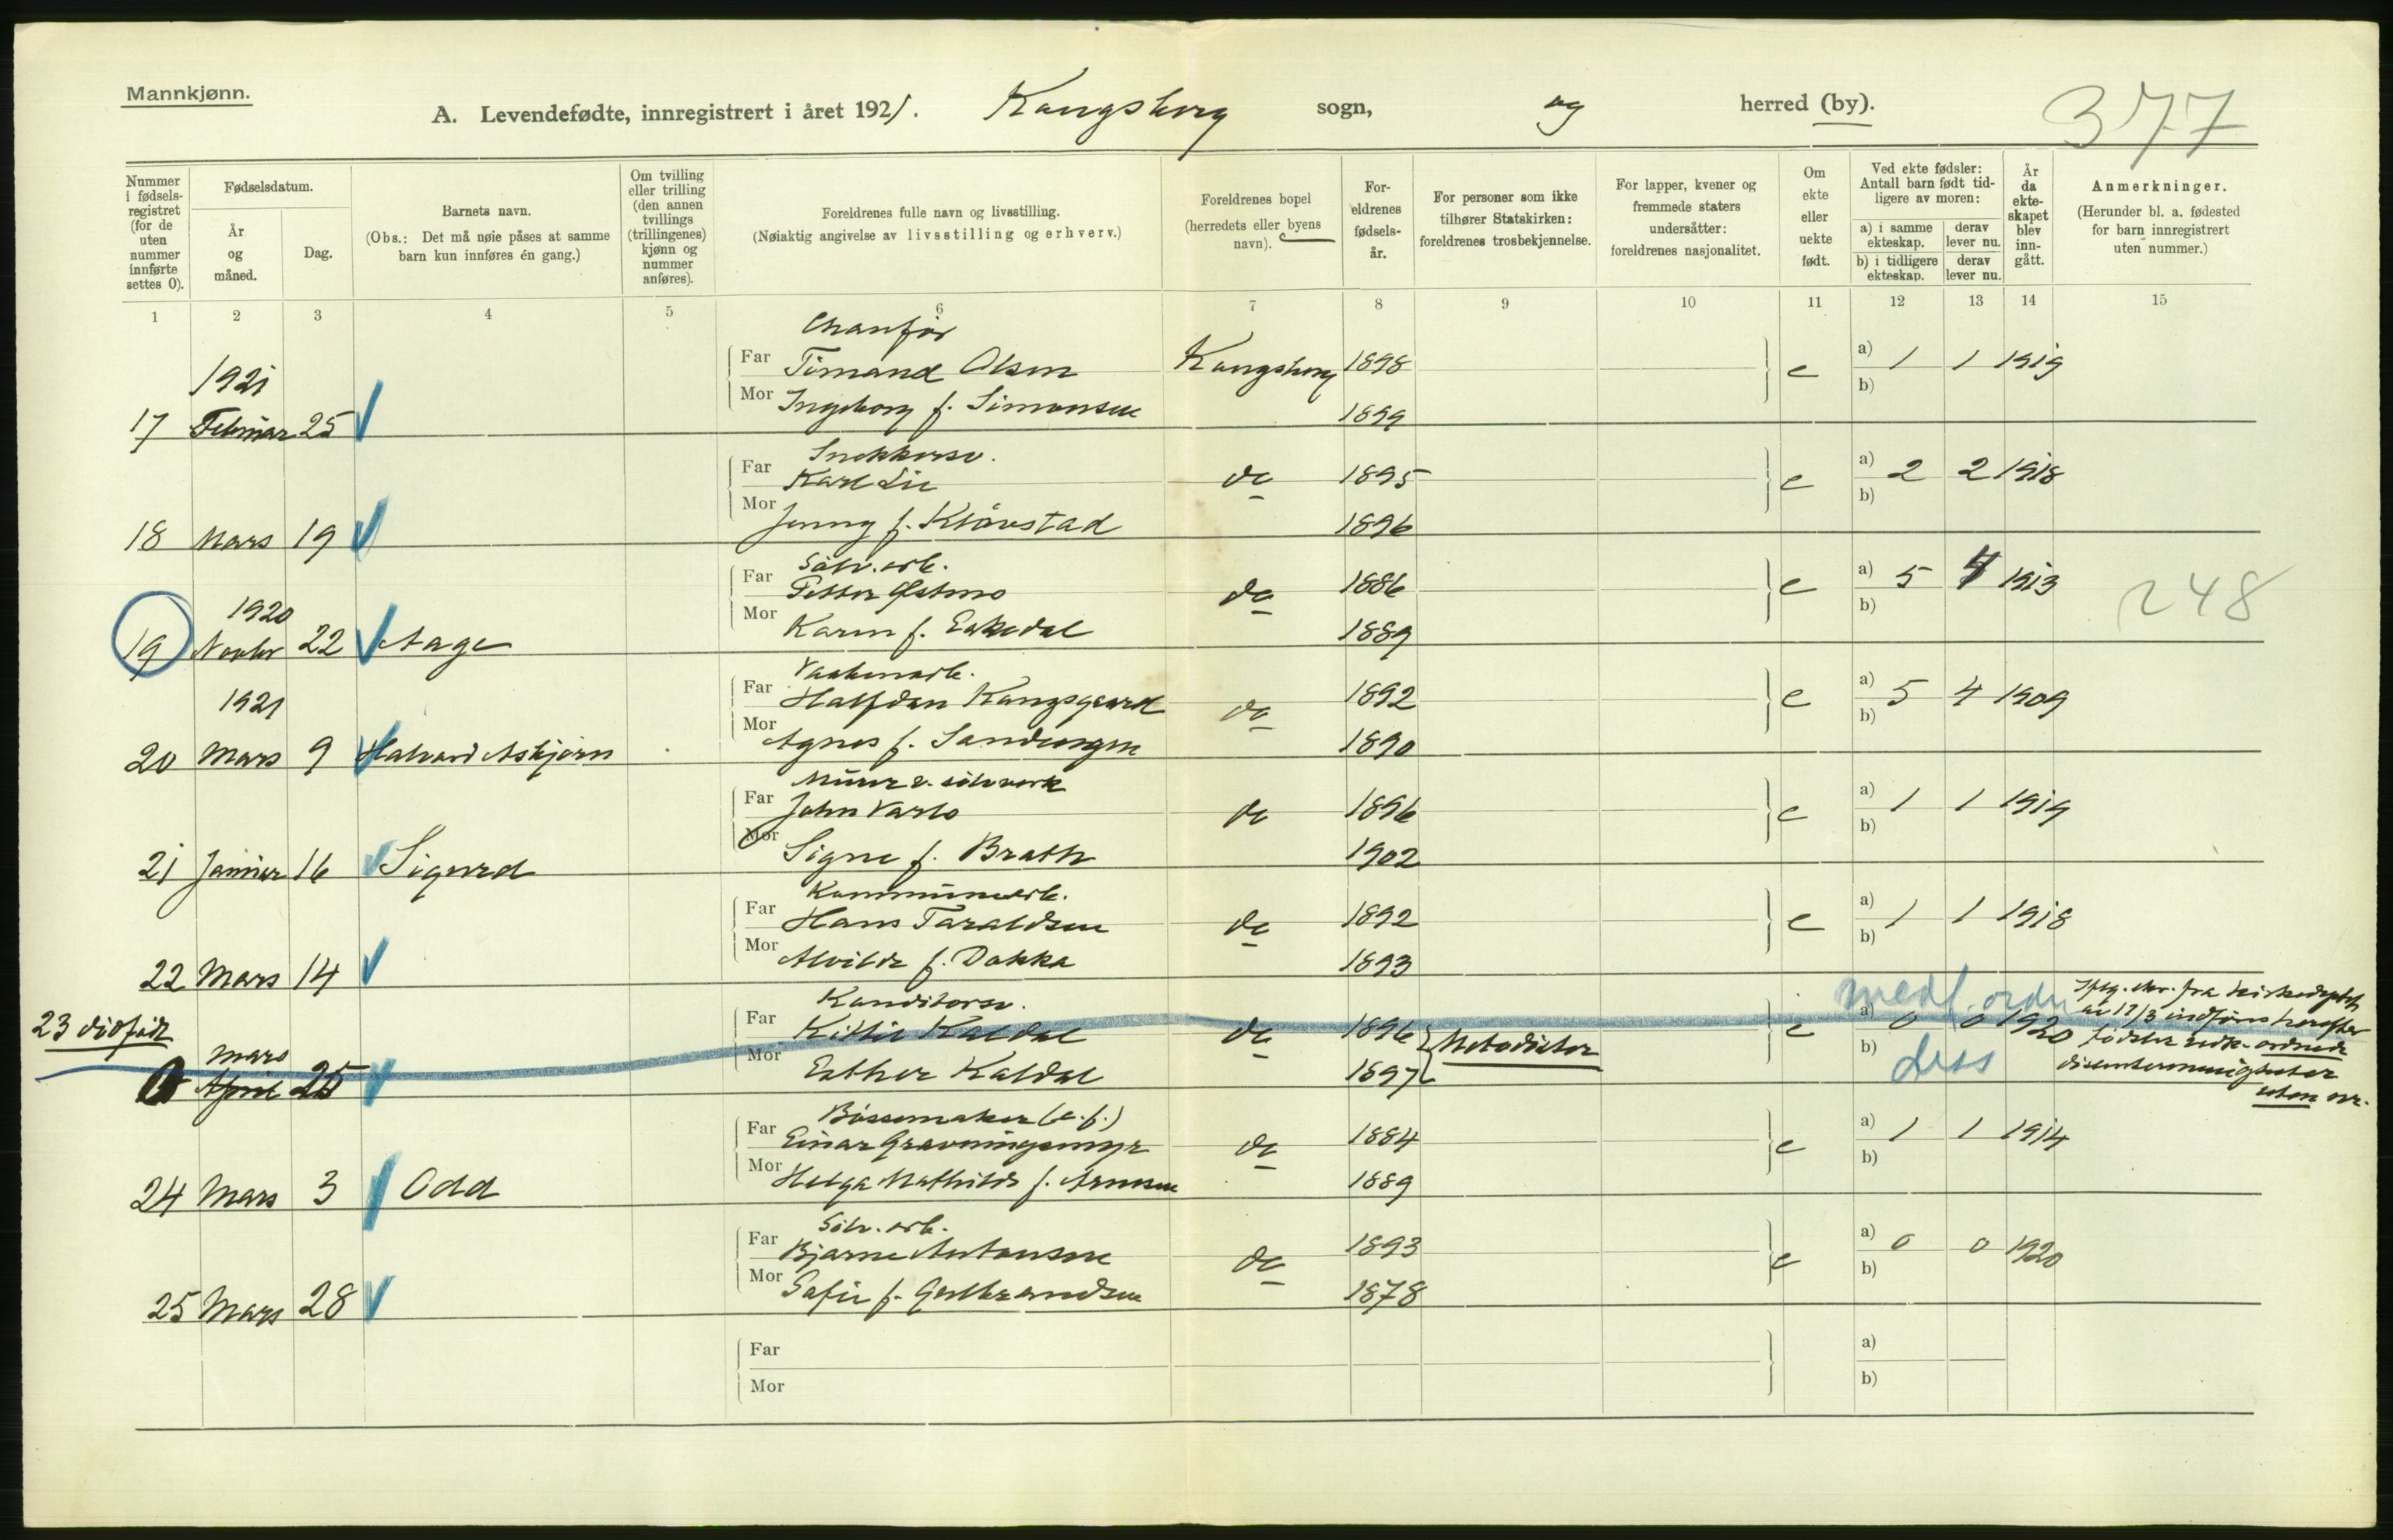 Mannkjønn.
A. Levendefødte, innregistrert i året 1921. Kongsberg sogn, og herred (by).
377
Nummer i fødsels-registret (for de uten nummer innførte settes 0).
Fødselsdatum.
År og måned.
Dag.
Barnets navn.
(Obs.: Det må nøie påses at samme barn kun innføres én gang.)
Om tvilling eller trilling (den annen tvillings (trillingenes) kjønn og nummer anføres).
Foreldrenes fulle navn og livsstilling.
(Nøiaktig angivelse av livsstilling og erhverv.)
Foreldrenes bopel (herredets eller byens navn).
For-eldrenes fødsels-år.
For personer som ikke tilhører Statskirken: foreldrenes trosbekjennelse.
For lapper, kvener og fremmede staters undersåtter: foreldrenes nasjonalitet.
Om ekte eller uekte født.
Ved ekte fødsler: Antall barn født tid-ligere av moren:
a) i samme ekteskap.
derav lever nu.
b) i tidligere ekteskap.
derav lever nu.
År da ekte-skapet blev inn-gått.
Anmerkninger.
(Herunder bl. a. fødested for barn innregistrert uten nummer.)
1 2 3 4 5 6 7 8 9 10 11 12 13 14 15
Chauffør
1921
Far Timand Olsen Kongsberg 1898 e a) 1 1 1919
b)
17 Februar 25 Mor Ingeborg f. Simonsen 1899
Snekkersv.
Far Karl Lie do 1895 e a) 2 2 1918
b)
18 Mars 19 Mor Jenny f. Kløvstad 1896
Sølv.arb.
Far Petter Østmo do 1886 e a) 5 4 1913
b)
248
1920
19 Novbr 22 Aage Mor Karen f. Eskedal 1889
Vaabenarb.
1921
Far Halfdan Kongsgaard do 1892 e a) 5 4 1909
b)
20 Mars 9 Halvard Asbjørn Mor Agnes f. Sandengen 1890
Murer v. sølvverk
Far John Varlo do 1896 e a) 1 1 1919
b)
21 Januar 16 Sigurd Mor Signe f. Brath 1902
Kommunearb.
Far Hans Taraldsen do 1892 e a) 1 1 1918
b)
22 Mars 14 Mor Alvilde f. Dokka 1893
Konditorsv.
23
Far Kittil Kaldal do 1896 Metodister e a) 0 0 1920
b)
medl. ordn
Diss
mars
0 April 25 Mor Esther Kaldal 1897
uten nr.
Bøssemaker (v.f.)
Far Einar Gravningsmyr do 1884 e a) 1 1 1914
b)
24 Mars 3 Odd Mor Helga Mathilde f. Arnesen 1889
Sølv.arb.
Far Bjarne Antonsen do 1893 e a) 0 0 1920
b)
25 Mars 28 Mor Safie f. Gulbrandsen 1878
Far a)
Mor b)